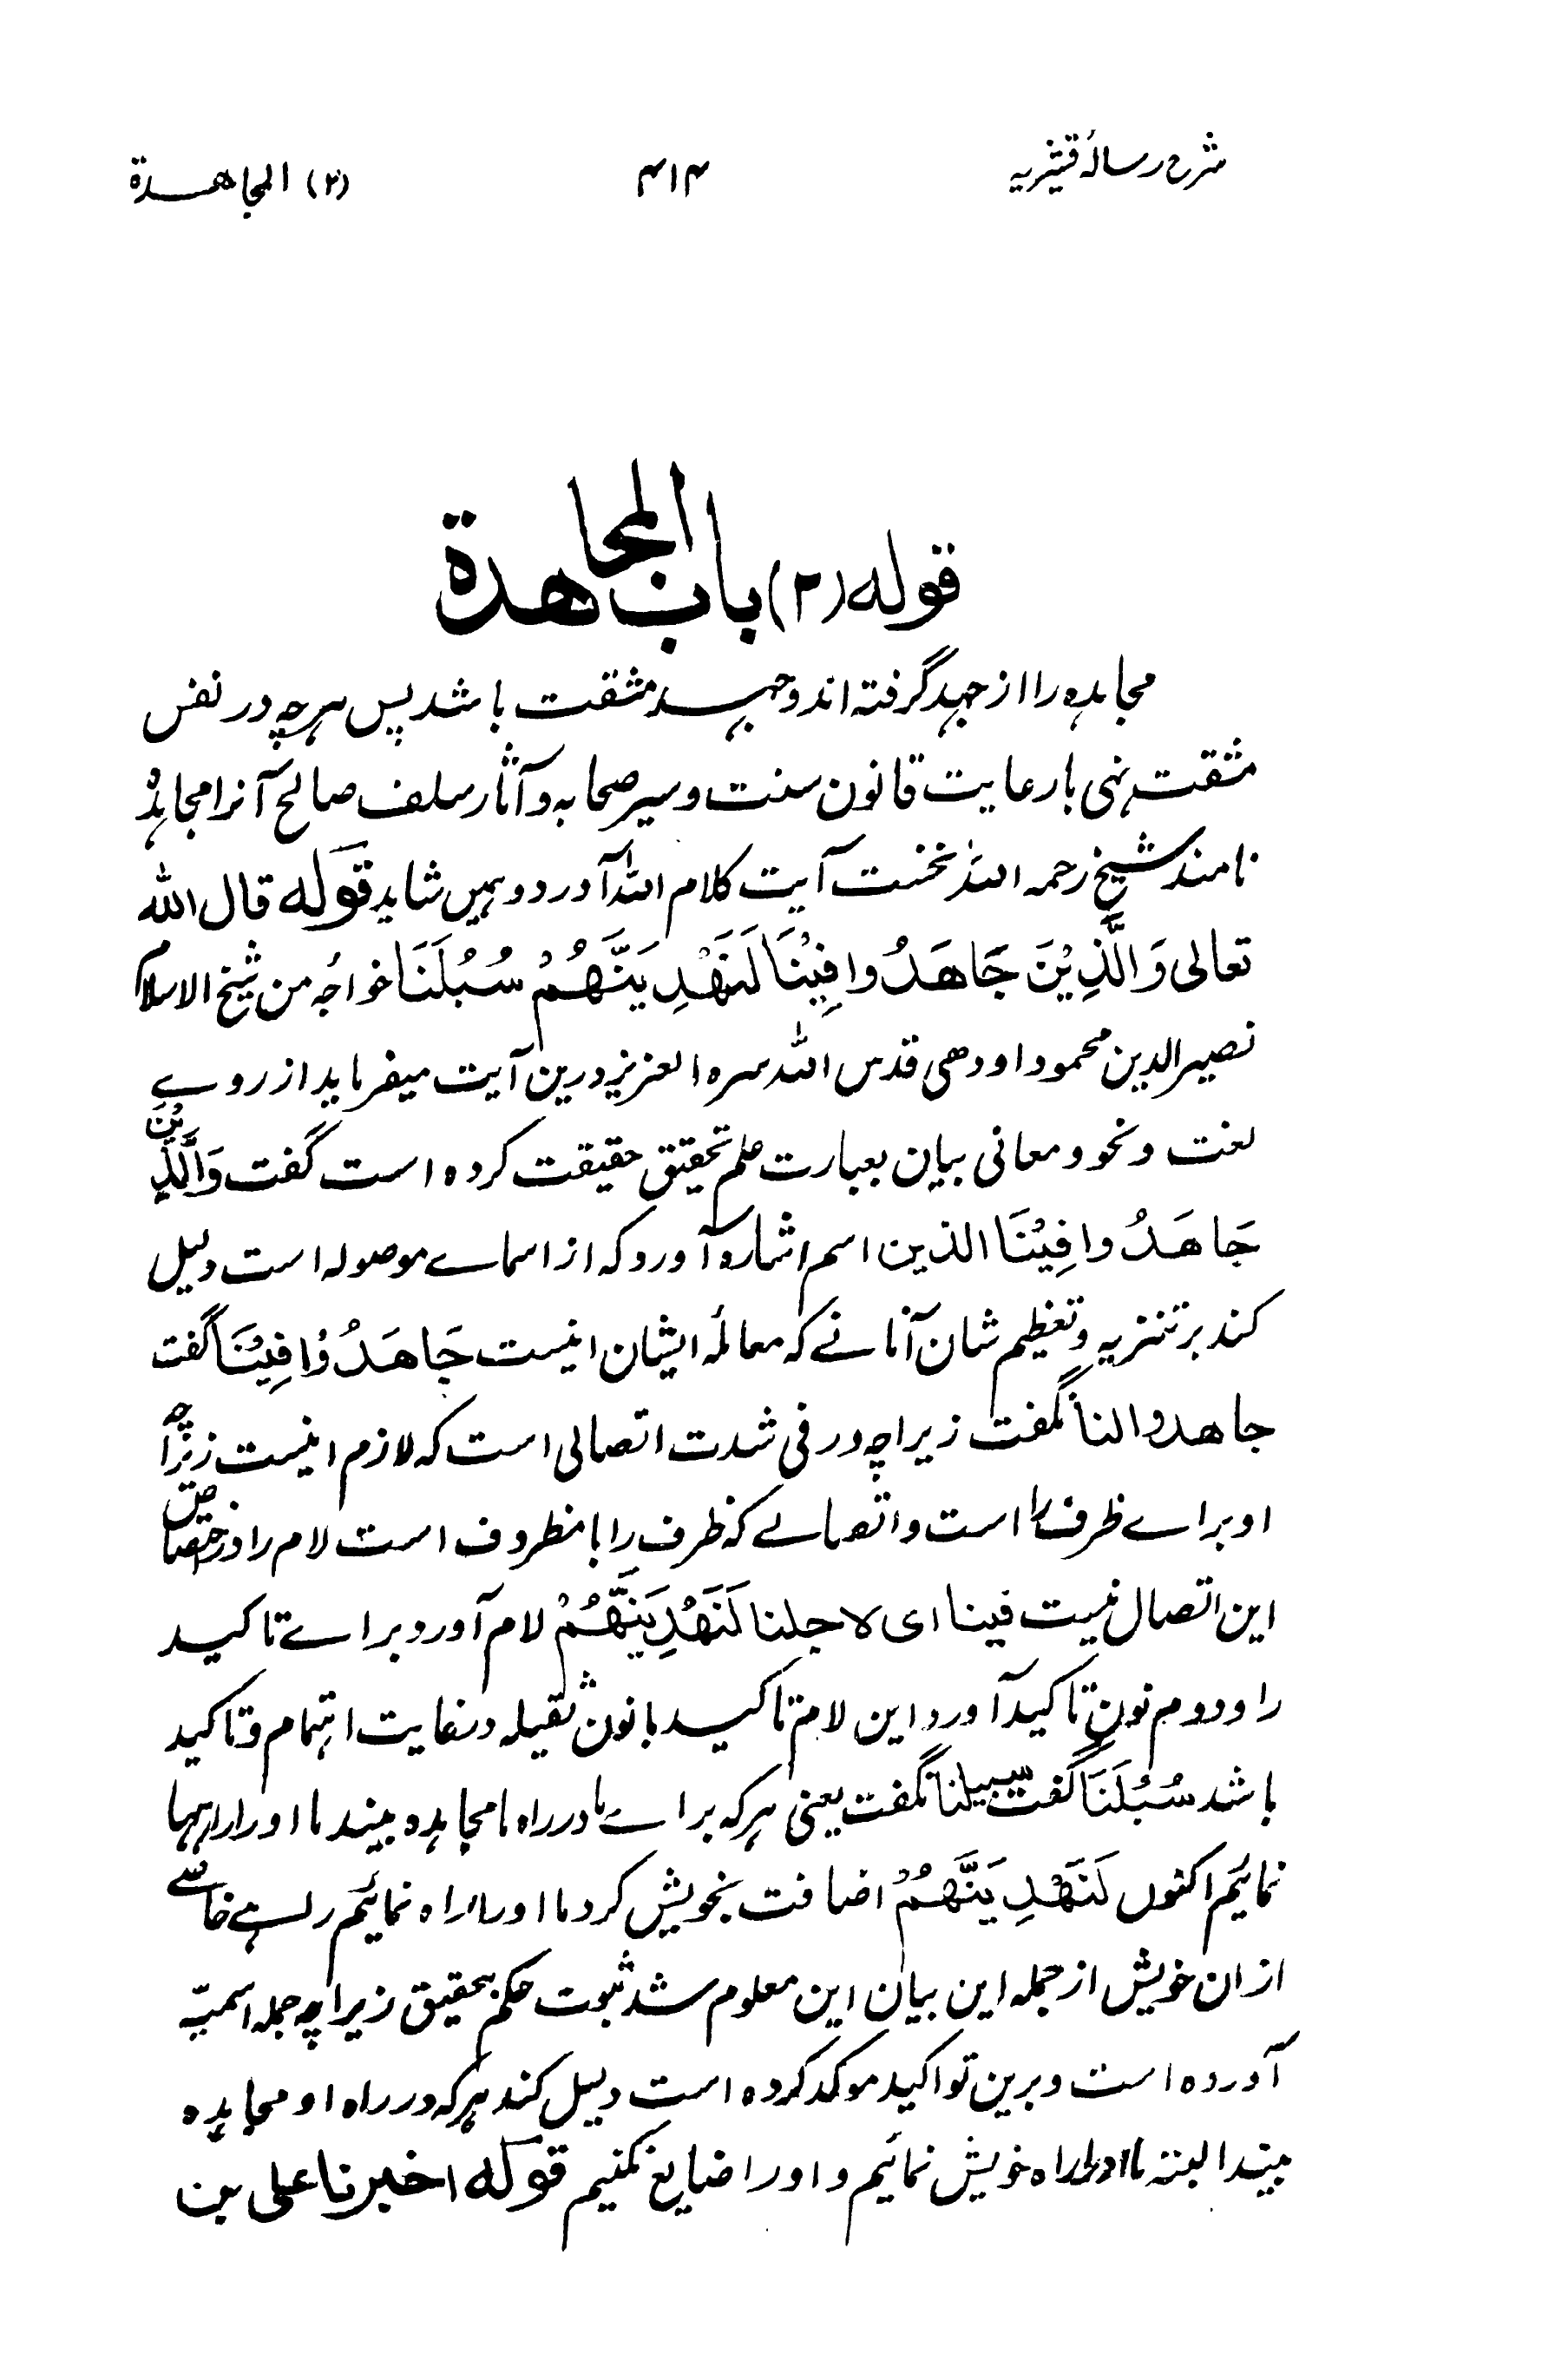 شرح رسالۂ قشیریہ
۴۱۴
(۲) المجاهدة
قوله (۲) باب المجاهدة
مجاہدہ را از جہد گرفتہ اند و جہد مشقت باشد پس ہرچہ در نفس
مشقت نہی بارعایت قانون سنت و سیر صحابہ و آثار سلف صالح آنرا مجاہدہ
نامند شیخ رحمہ اللہ نخست آیت کلام اللہ آورد و ہمیں شاید قوله قال الله
تعالی وَالَّذِیْنَ جَاهَدُوا فِیْنَا لَنَهْدِیَنَّهُمْ سُبُلَنَا خواجۂ من شیخ الاسلام
نصیر الدین محمود اودھی قدس اللہ سرہ العزیز درین آیت میفرماید از روے
لغت و نحو و معانی بیان بعبارت علم تحقیق حقیقت کردہ است گفت وَالَّذِیْنَ
جَاهَدُوا فِیْنَا الذین اسم اشارہ آورد کہ از اسماے موصولہ است دلیل
کند بر تنزیہ و تعظیم شان آنانے کہ معاملۂ ایشان اینست جَاهَدُوْا فِیْنَا گفت
جاهدوا لنا نگفت زیراچہ در فی شدت اتصالی است کہ لازم اینست زیراچہ
او براے ظرف را است و اتصالے کہ ظرف را با مظروف است لام را در اختصاص
این اتصال نیست فینا ای لاجلنا لَنَهْدِیَنَّهُمْ لام آورد براے تاکید
را و دوم نون تاکید آورد این لام تاکید با نون ثقیلہ در غایت اہتمام و تاکید
باشد سُبُلَنَا گفت سبیلنا نگفت یعنی ہرکہ براے ما در راہ ما مجاہدہ بیند ما او را راہہا
نمائیم اکنوں لَنَهْدِیَنَّهُمْ اضافت بخویش کرد ما او را راہ نمائیم راہے خاصے
ازان خویش از جملہ این بیان این معلوم شد ثبوت حکم بتحقیق زیراچہ جملہ اسمیہ
آوردہ است و برین تواکید موکد کردہ است دلیل کند ہرکہ در راہ او مجاہدہ
بیند البتہ ما او را راہ خویش نمائیم و او را ضایع نکنیم قوله اخبرنا علی بن